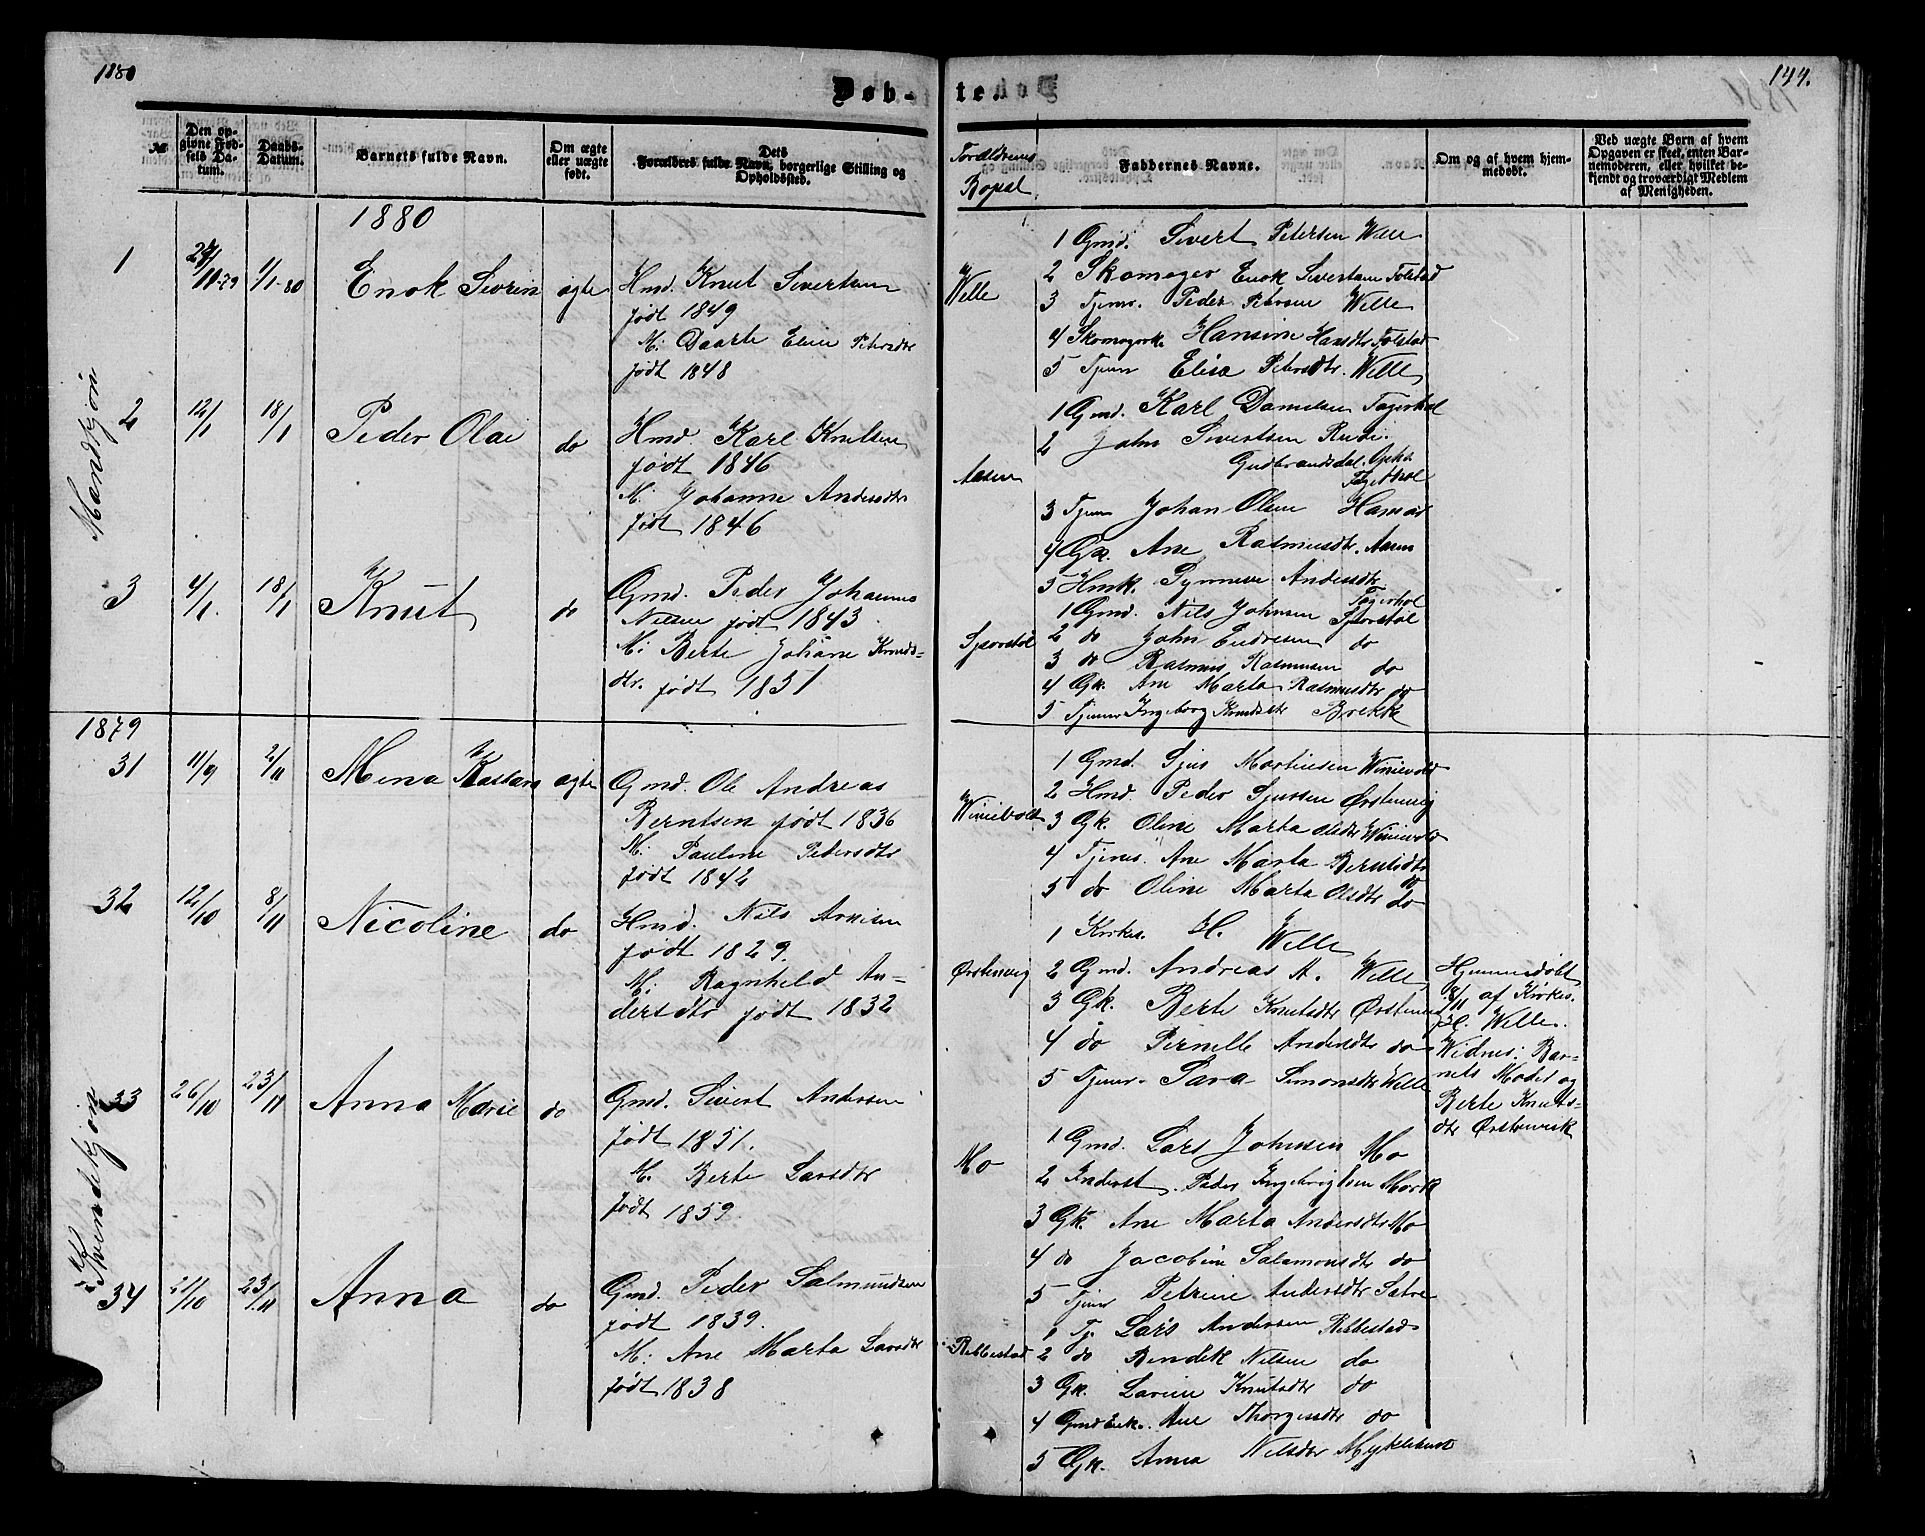 1880
Døb-
te.
144.
№
Den op-
givne Fød-
sels Da-
tum.
Daabs-
Datum.
Barnets fulde Navn.
Om ægte
eller uægte
født.
Dets
Forældres fulde Navn, borgerlige Stilling og
Opholdssted.
Forældrenes
Bopæl
Faddernes Navne.
Om og af hvem hjem-
medøbt.
Ved uægte Børn af hvem
Opgaven er skeet, enten Bar-
nemoderen, eller hvilket be-
kjendt og troværdigt Medlem
af Menigheden.
1880
Mandkjøn
1
11-79
1/1-80
Enok Sivrin
ægte
Hmd. Knut Sivertsen
født 1849
M: Daarte Eline Petersdtr
født 1848
Welle
1 Gmd. Sivert Petersen Welle
2 Skomager Enok Sivertsen Folstad
3 Tjener. Peder Petersen Welle
4 Hansine Hansdtr Folstad
5 Tjener Elisa Petersdtr. Welle
2
12/1
18/1
Peder Olai
do
Hmd Karl Knutsen
født 1846
M: Johanne Andersdtr
født 1846
Aasen
1 Gmd. Karl Danielsen Fagerhol
2 John Sivertsen Rusti
Gudbrandsdal. Opha
3 Tjener Johan Olsen Hamar
4 Gk. Ane Rasmusdtr. Aasen
5 Hmk. Synneve Andersdtr.
Fagerhol
3
4/1
18/1
Knut
do
Gmd. Peder Johannes
Nilsen født 1843.
M: Berte Johane Knuds-
dtr. født 1851
1 Gmd. Nils Johnsen
2 do John Endresen do
3 do Rasmus Rasmusen do
4 Gk. Ane Marta Rasmusdtr do
5 Tjener Ingeborg Knudsdtr Brekke
1879
31
11/9
2/11
Mena
ægte
Gmd. Ole Andreas
Berntsen født 1836
M: Pauline Pedersdtr
født 1842
Winievold
1 Gmd. Sjur Martinsen Winievold
2 Hmd. Peder Sjursen Ørstenvig
3 Gk. Oline Marta Olsdtr Winievold
4 Tjenes. Ane Marta Berntsdtr
do
5 do Oline Marta Olsdtr do
32
12/10
8/11
Nicoline
do
Hmd. Nils Arnesen
født 1829.
M: Ragnhild An-
dersdtr født 1832
Ørstenvig
1 Kirkes. H. Welle
2 Gmd. Andreas A. Welle
3 Gk. Berte Knutsdtr Ørstenvig
4 do Pernelle Andersdtr do
5 Tjener. Sara Simonsdtr Welle
Hjemmedøbt
8/11 af Kirkes.
H. Welle.
Widnes: Bar-
nets Moder og
Berte Knuts-
dtr Ørstenvik
Kvindekjøn
33
26/10
23/11
Anna Marie
do
Gmd. Sivert Andersen
født 1851.
M. Berte Larsdtr
født 1859.
Mo
1 Gmd. Lars Johnsen Mo
2 Inderst. Peder Ingebrigtsen Mork
3 Gk. Ane Marta Andersdtr Mo
4 do Jacobine Salamonsdtr do
5 Tjener Petrine Andersdtr Satre
34
21/10
23/11
Anna
do
Gmd. Peder Salmundsen
født 1839.
M: Ane Marta Larsdtr
født 1838
Rebbestad
1 Tj. Lars Andersen Rebbestad
2 do Bendik Nilsen do
3 Gk. Lavine Knutsdtr do
4 Gmd Enk. Ane Thorgersdtr do
5 Gk. Anna Nilsdtr Myklebust